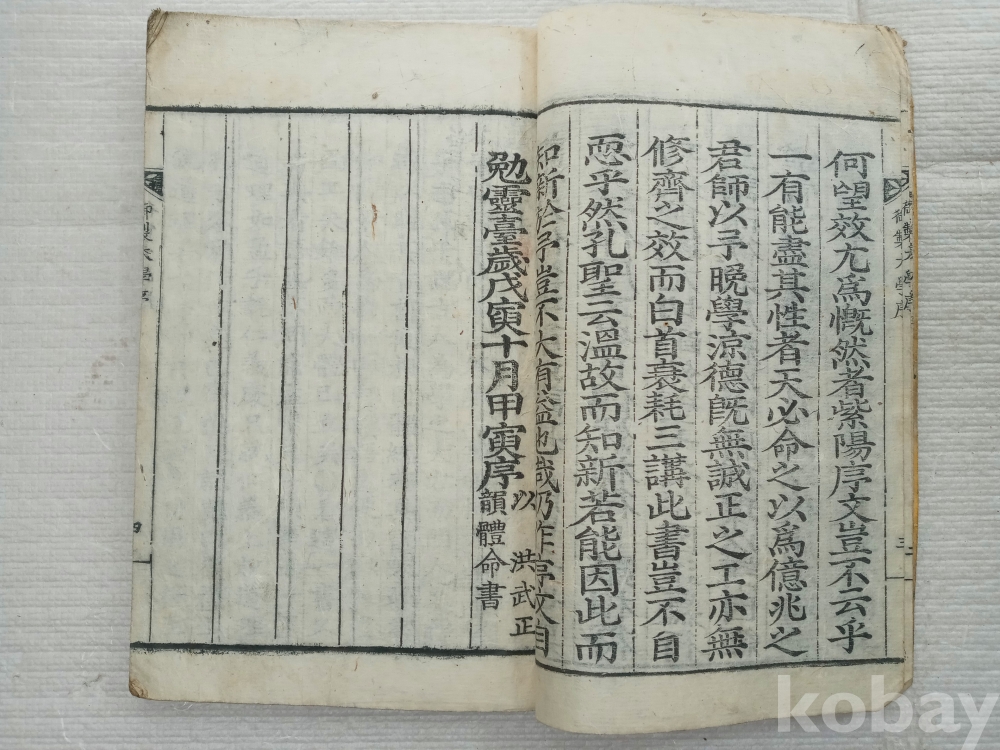 御製大學序
三
何望效尤爲慨然者紫陽序文豈不云乎
一有能盡其性者天必命之以爲億兆之
君師以予晚學涼德旣無誠正之工亦無
修齊之效而白首衰耗三講此書豈不自
恧乎然孔聖云溫故而知新若能因此而
知新於予豈不大有益也哉仍作序文自
勉靈臺歲戊寅十月甲寅序以洪武正
韻體命書
御製大學序
四
kobay